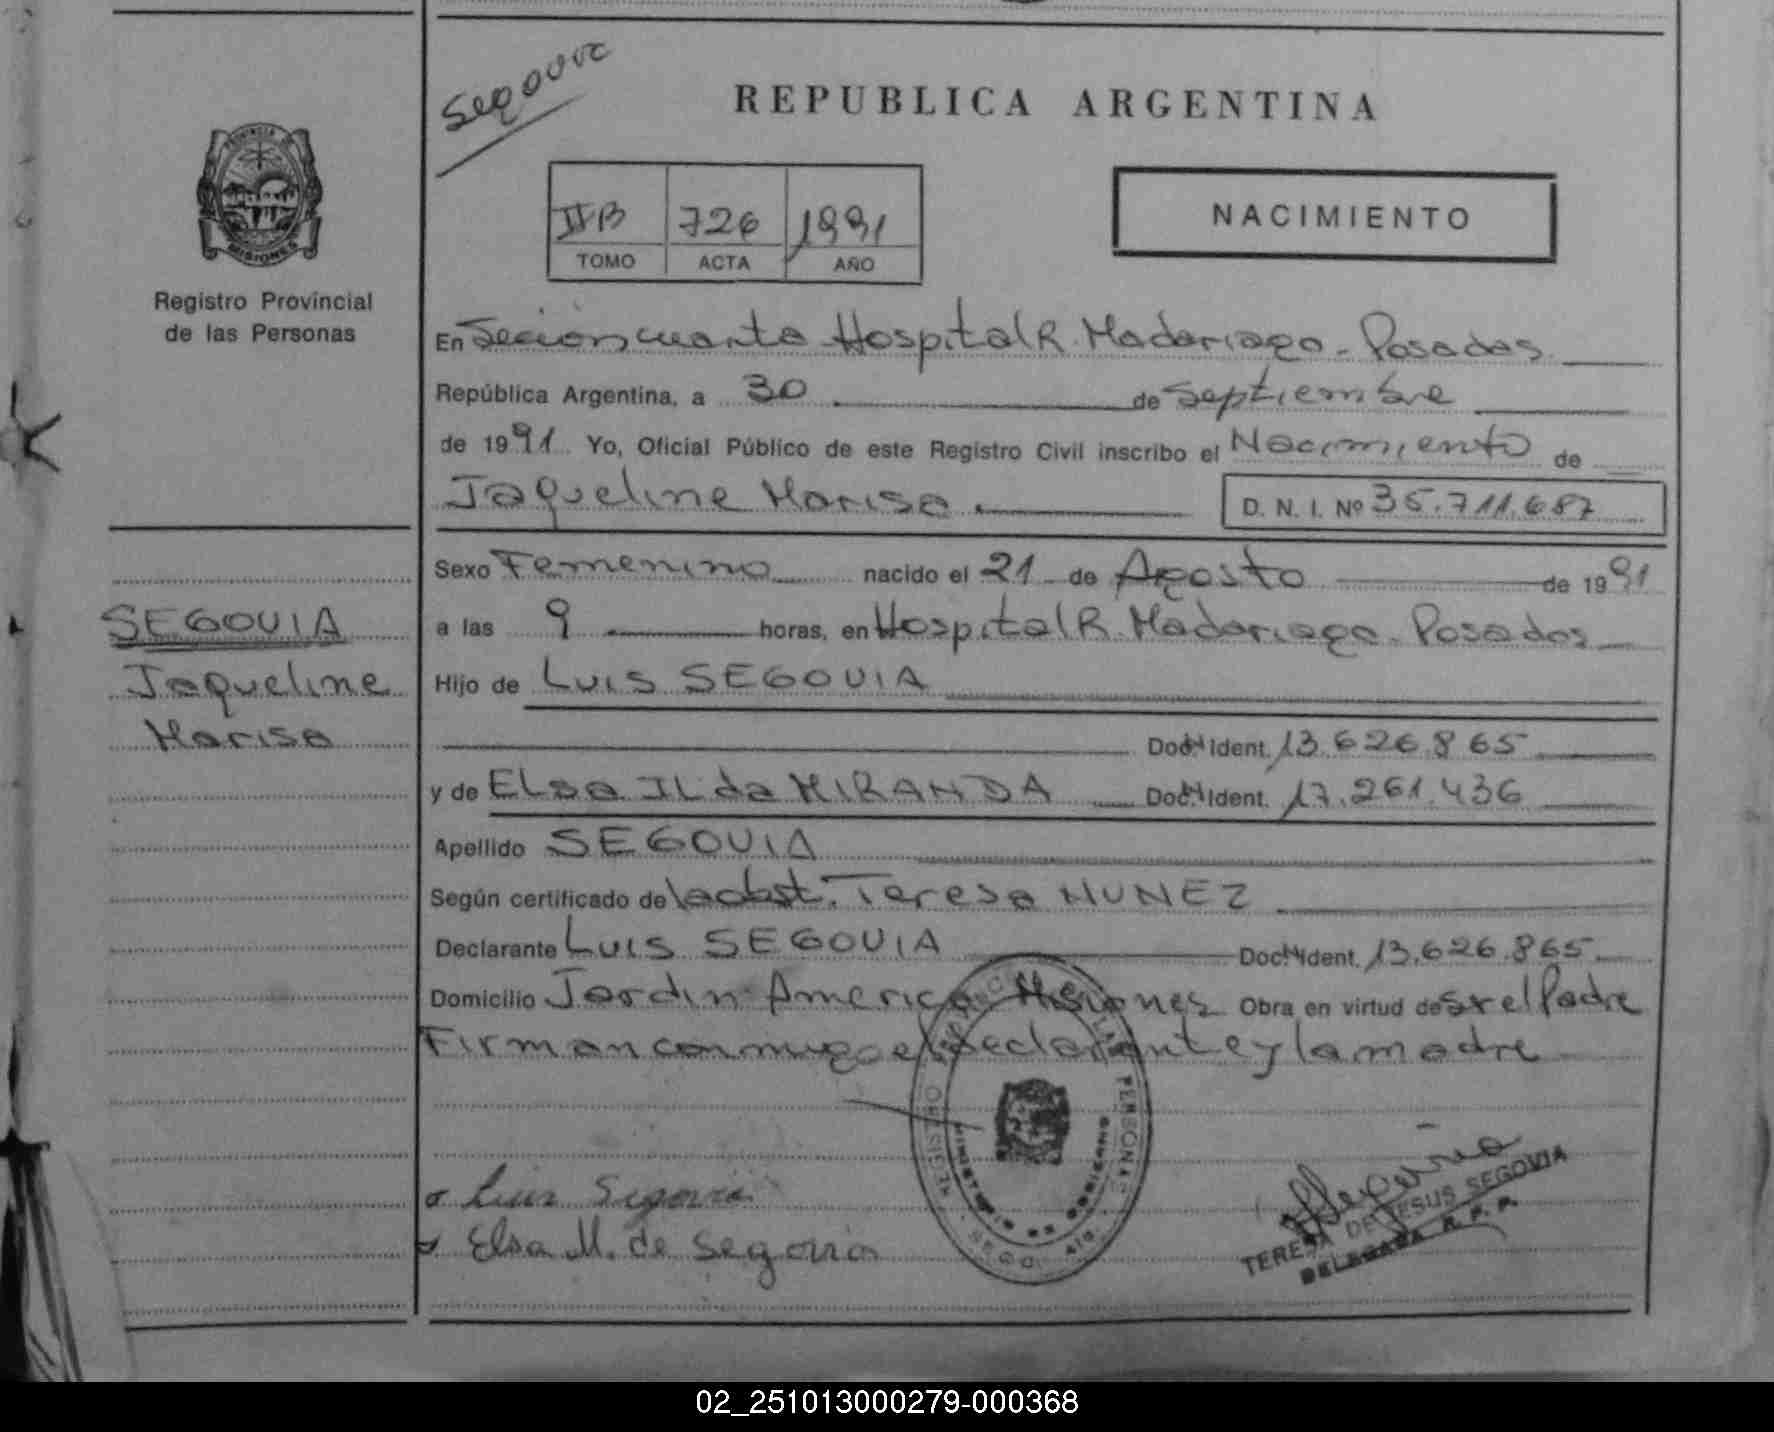 Segovia
REPUBLICA ARGENTINA
II B 726 1991
TOMO ACTA AÑO
NACIMIENTO
MISIONES
Registro Provincial
de las Personas
SEGOVIA
Jaqueline
Marisa
En Seccion cuarta Hospital R. Madariaga - Posadas
República Argentina, a 30 de Septiembre
de 1991 Yo, Oficial Público de este Registro Civil inscribo el Nacimiento de
Jaqueline Marisa D. N. I. Nº 35.711.687
Sexo Femenino nacido el 21 de Agosto de 1991
a las 9 horas, en Hospital R. Madariaga - Posadas
Hijo de Luis SEGOVIA
Doc. Ident. 13.626.865
y de ELsa ILda MIRANDA Doc. Ident. 17.261.436
Apellido SEGOVIA
Según certificado de la obst. Teresa NUNEZ
Declarante Luis SEGOVIA Doc. Ident. 13.626.865
Domicilio Jardin America Misiones Obra en virtud de ser el Padre
Firman conmigo el declarante y la madre
Luis Segovia
Elsa M. de Segovia
TERESA DE JESUS SEGOVIA
DELEGADA R. P. P.
02_251013000279-000368